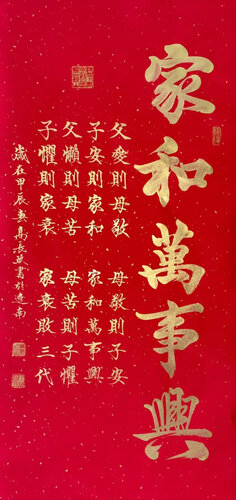 家和萬事興
父愛則母敬 母敬則子安
子安則家和 家和萬事興
父懶則母苦 母苦則子懼
子懼則家衰 家衰敗三代
歲在甲辰高長書於南